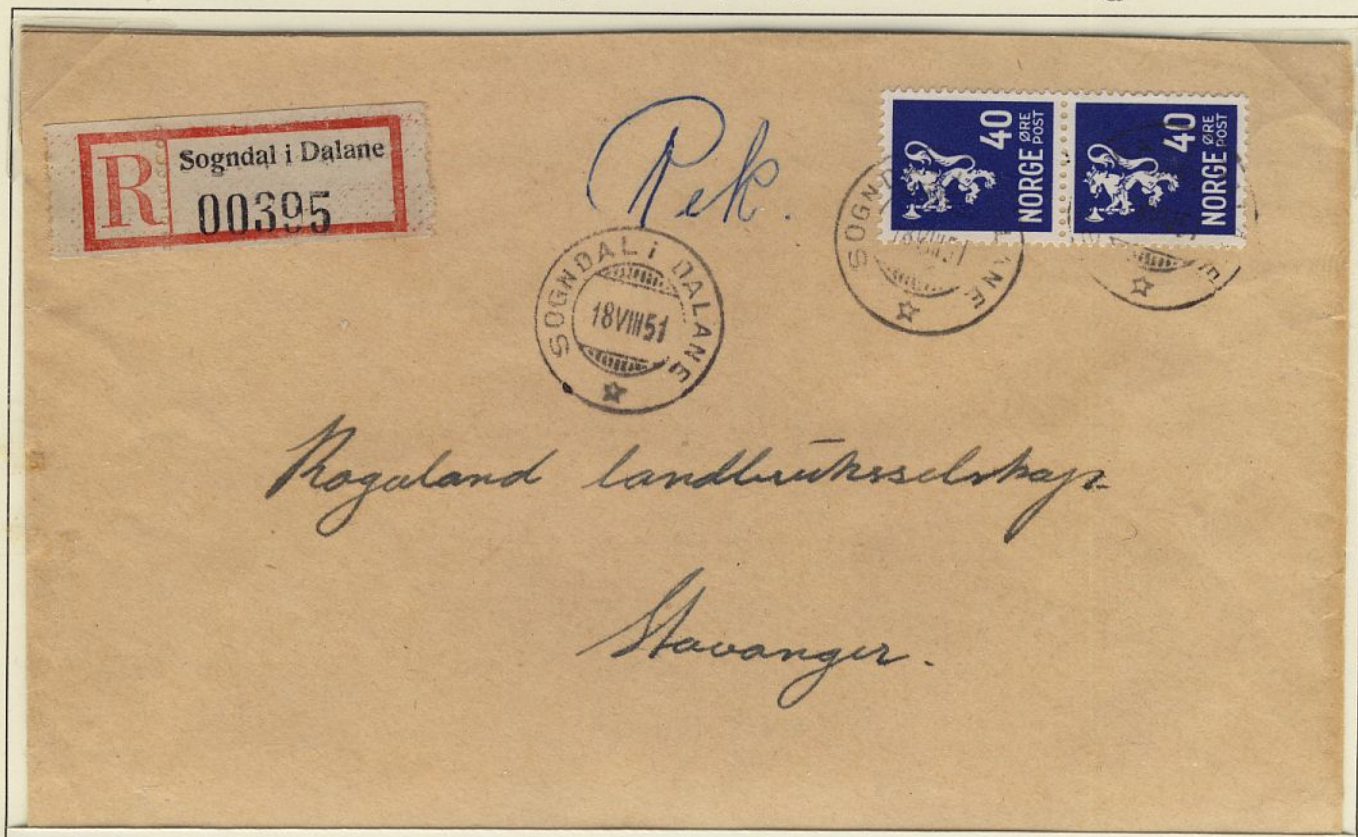 R Sogndal i Dalane
00395
Rek.
40
ØRE
POST
NORGE
40
ØRE
POST
NORGE
SOGNDAL i DALANE
18 VIII 51
SOGND ANE
18 VIII 51
Rogaland landbruksselskap
Stavanger.